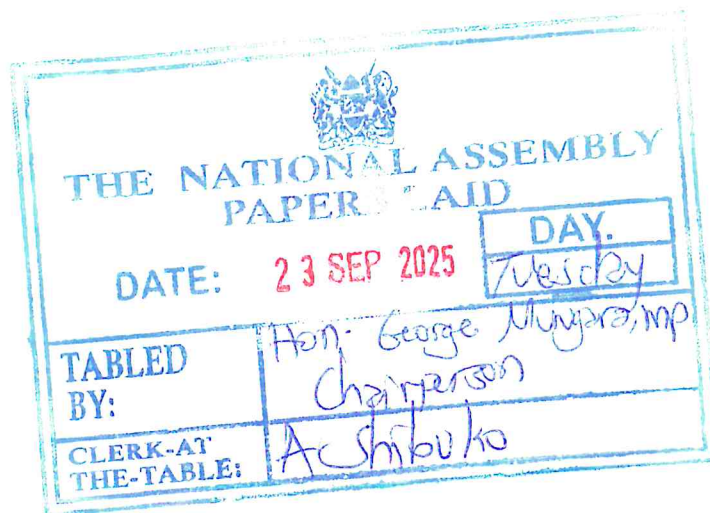 THE NATIONAL ASSEMBLY
PAPERS LAID
DATE: 23 SEP 2025
DAY.
Tuesday
TABLED BY:
Hon. George Murugara, MP
Chairperson
CLERK-AT THE-TABLE:
A Shibuko